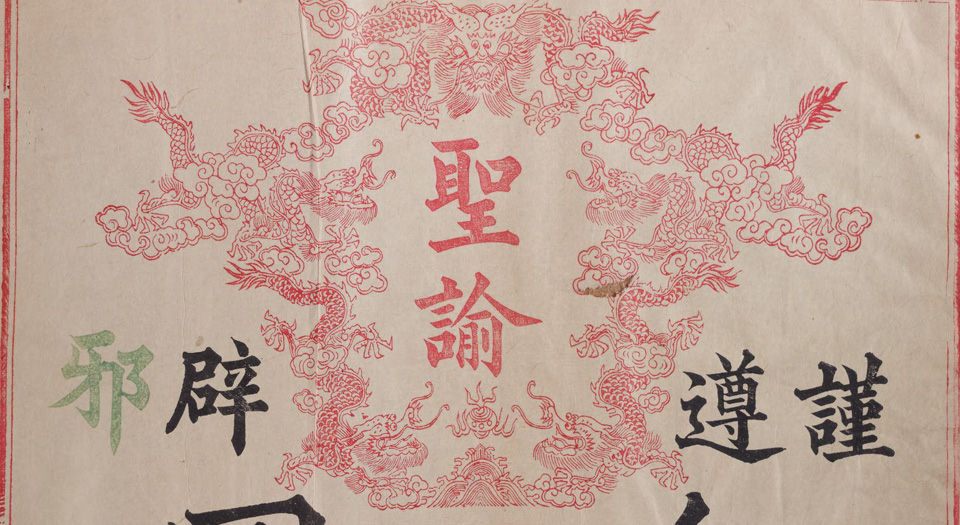 謹遵
聖諭
辟邪